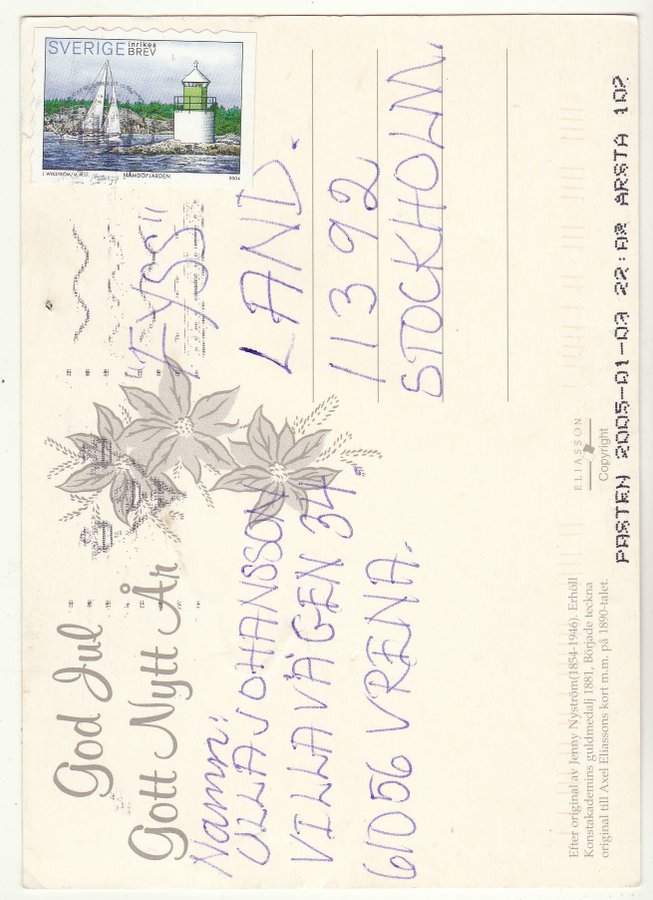 SVERIGE inrikes BREV
J. WIKSTRÖM/M. NAMDÖFJÄRDEN 2004
God Jul
Gott Nytt År
Namn:
ULLA JOHANSSON
VILLAVÄGEN 34
61056 VRENA.
"FYSS"
LAND.
113 92
STOCKHOLM.
ELIASSON
Copyright
Efter original av Jenny Nyström(1854-1946). Erhöll
Konstakademins guldmedalj 1881. Började teckna
original till Axel Eliassons kort m.m. på 1890-talet.
POSTEN 2005-01-03 22:02 ÅRSTA 102